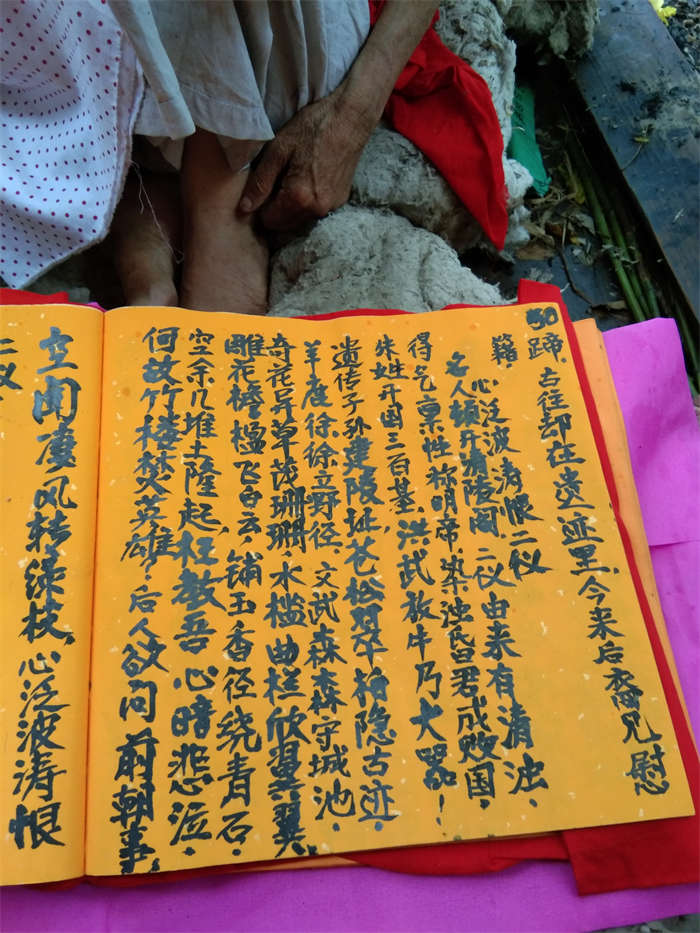 50蹄，古往却在遗迹里，今来后裔兄慰
籍，心泛波涛恨二仪
名人顿开清陵阁，二仪由来有清浊，
得气禀性称明帝，染浊昏君成败国，
朱姓开国三百基，洪武放牛乃大器！
遗传子孙建陵址，苍松翠柏隐古迹，
徐徐立野径，文武森森守城池，
奇花异草茂珊珊，水槛曲栏欣翼翼，
雕花楹飞白云，铺玉香径绕青石，
空余几堆土隆起，枉教吾心暗悲泣，
何故竹楼焚英雄，后人欲问前朝事，
空闻凄风转绿杖，心泛波涛恨
二仪